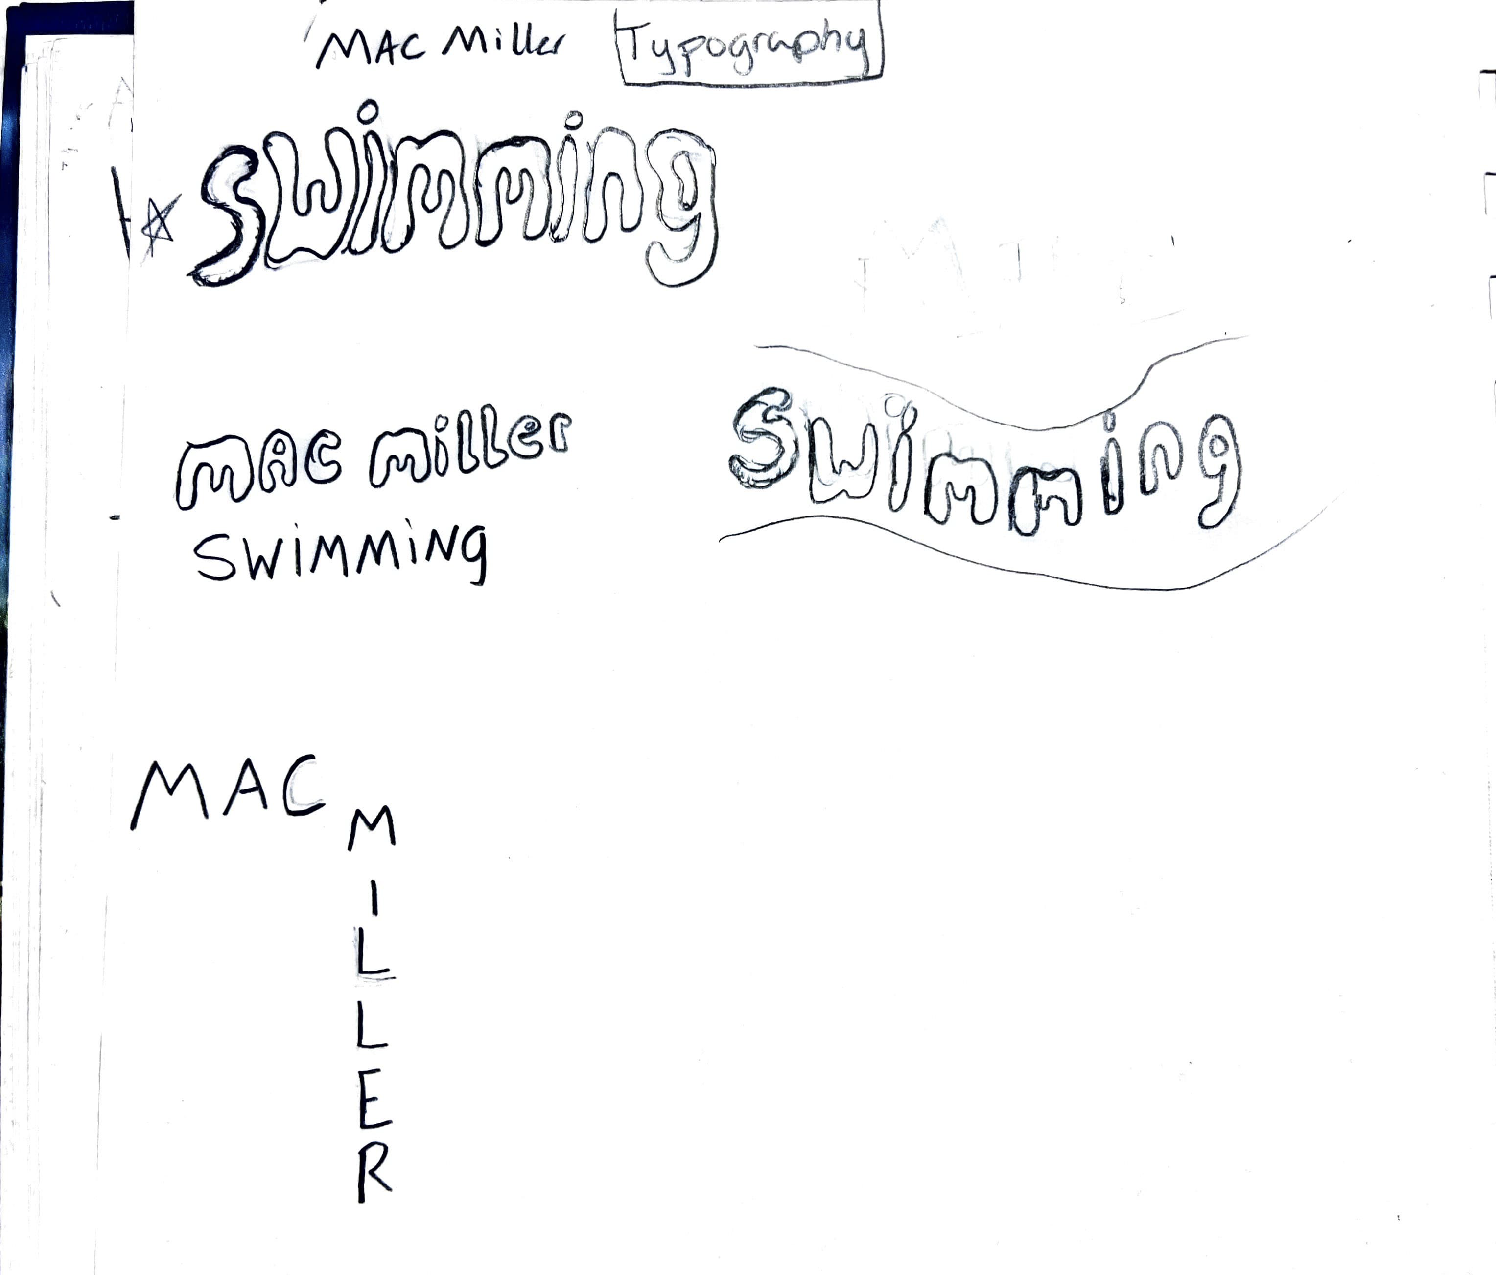 MAC Miller Typography
SWimming
MAC Miller
SWiMMiNg
Swimming
MAC
M
I
L
L
E
R